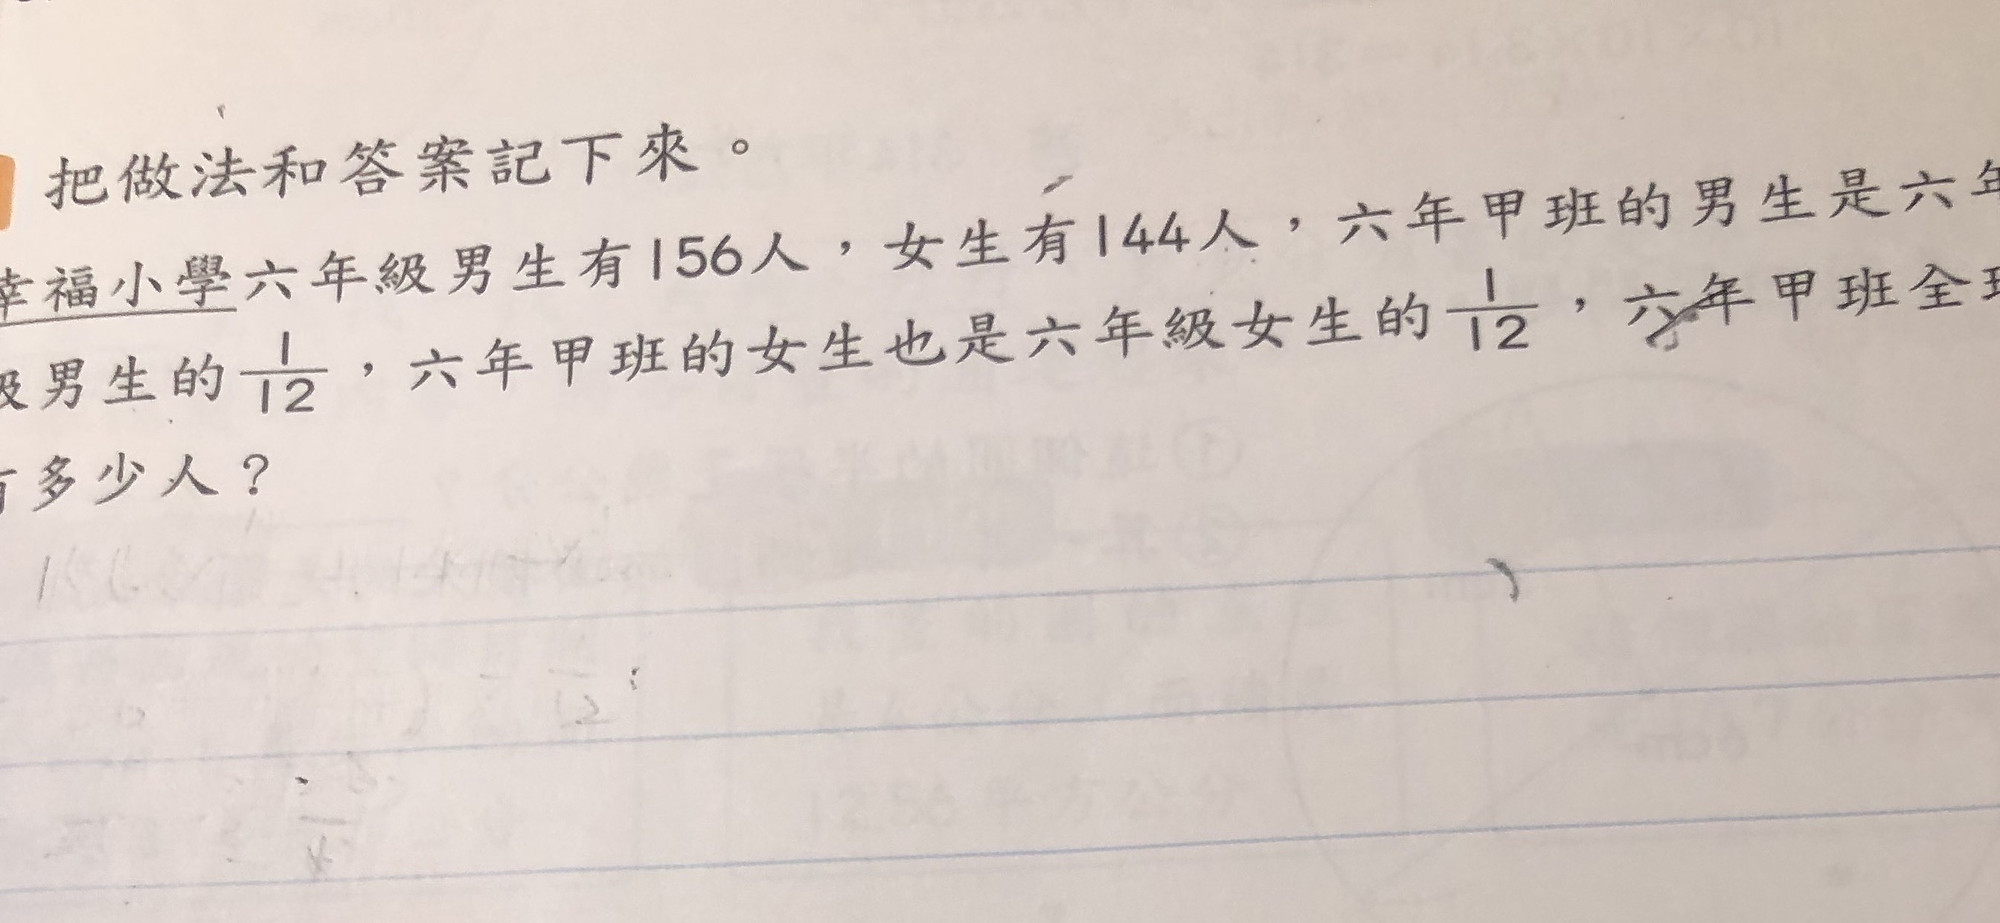 把做法和答案記下來。
幸福小學六年級男生有156人，女生有144人，六年甲班的男生是六年
級男生的1/12，六年甲班的女生也是六年級女生的1/12，六年甲班全班
有多少人？